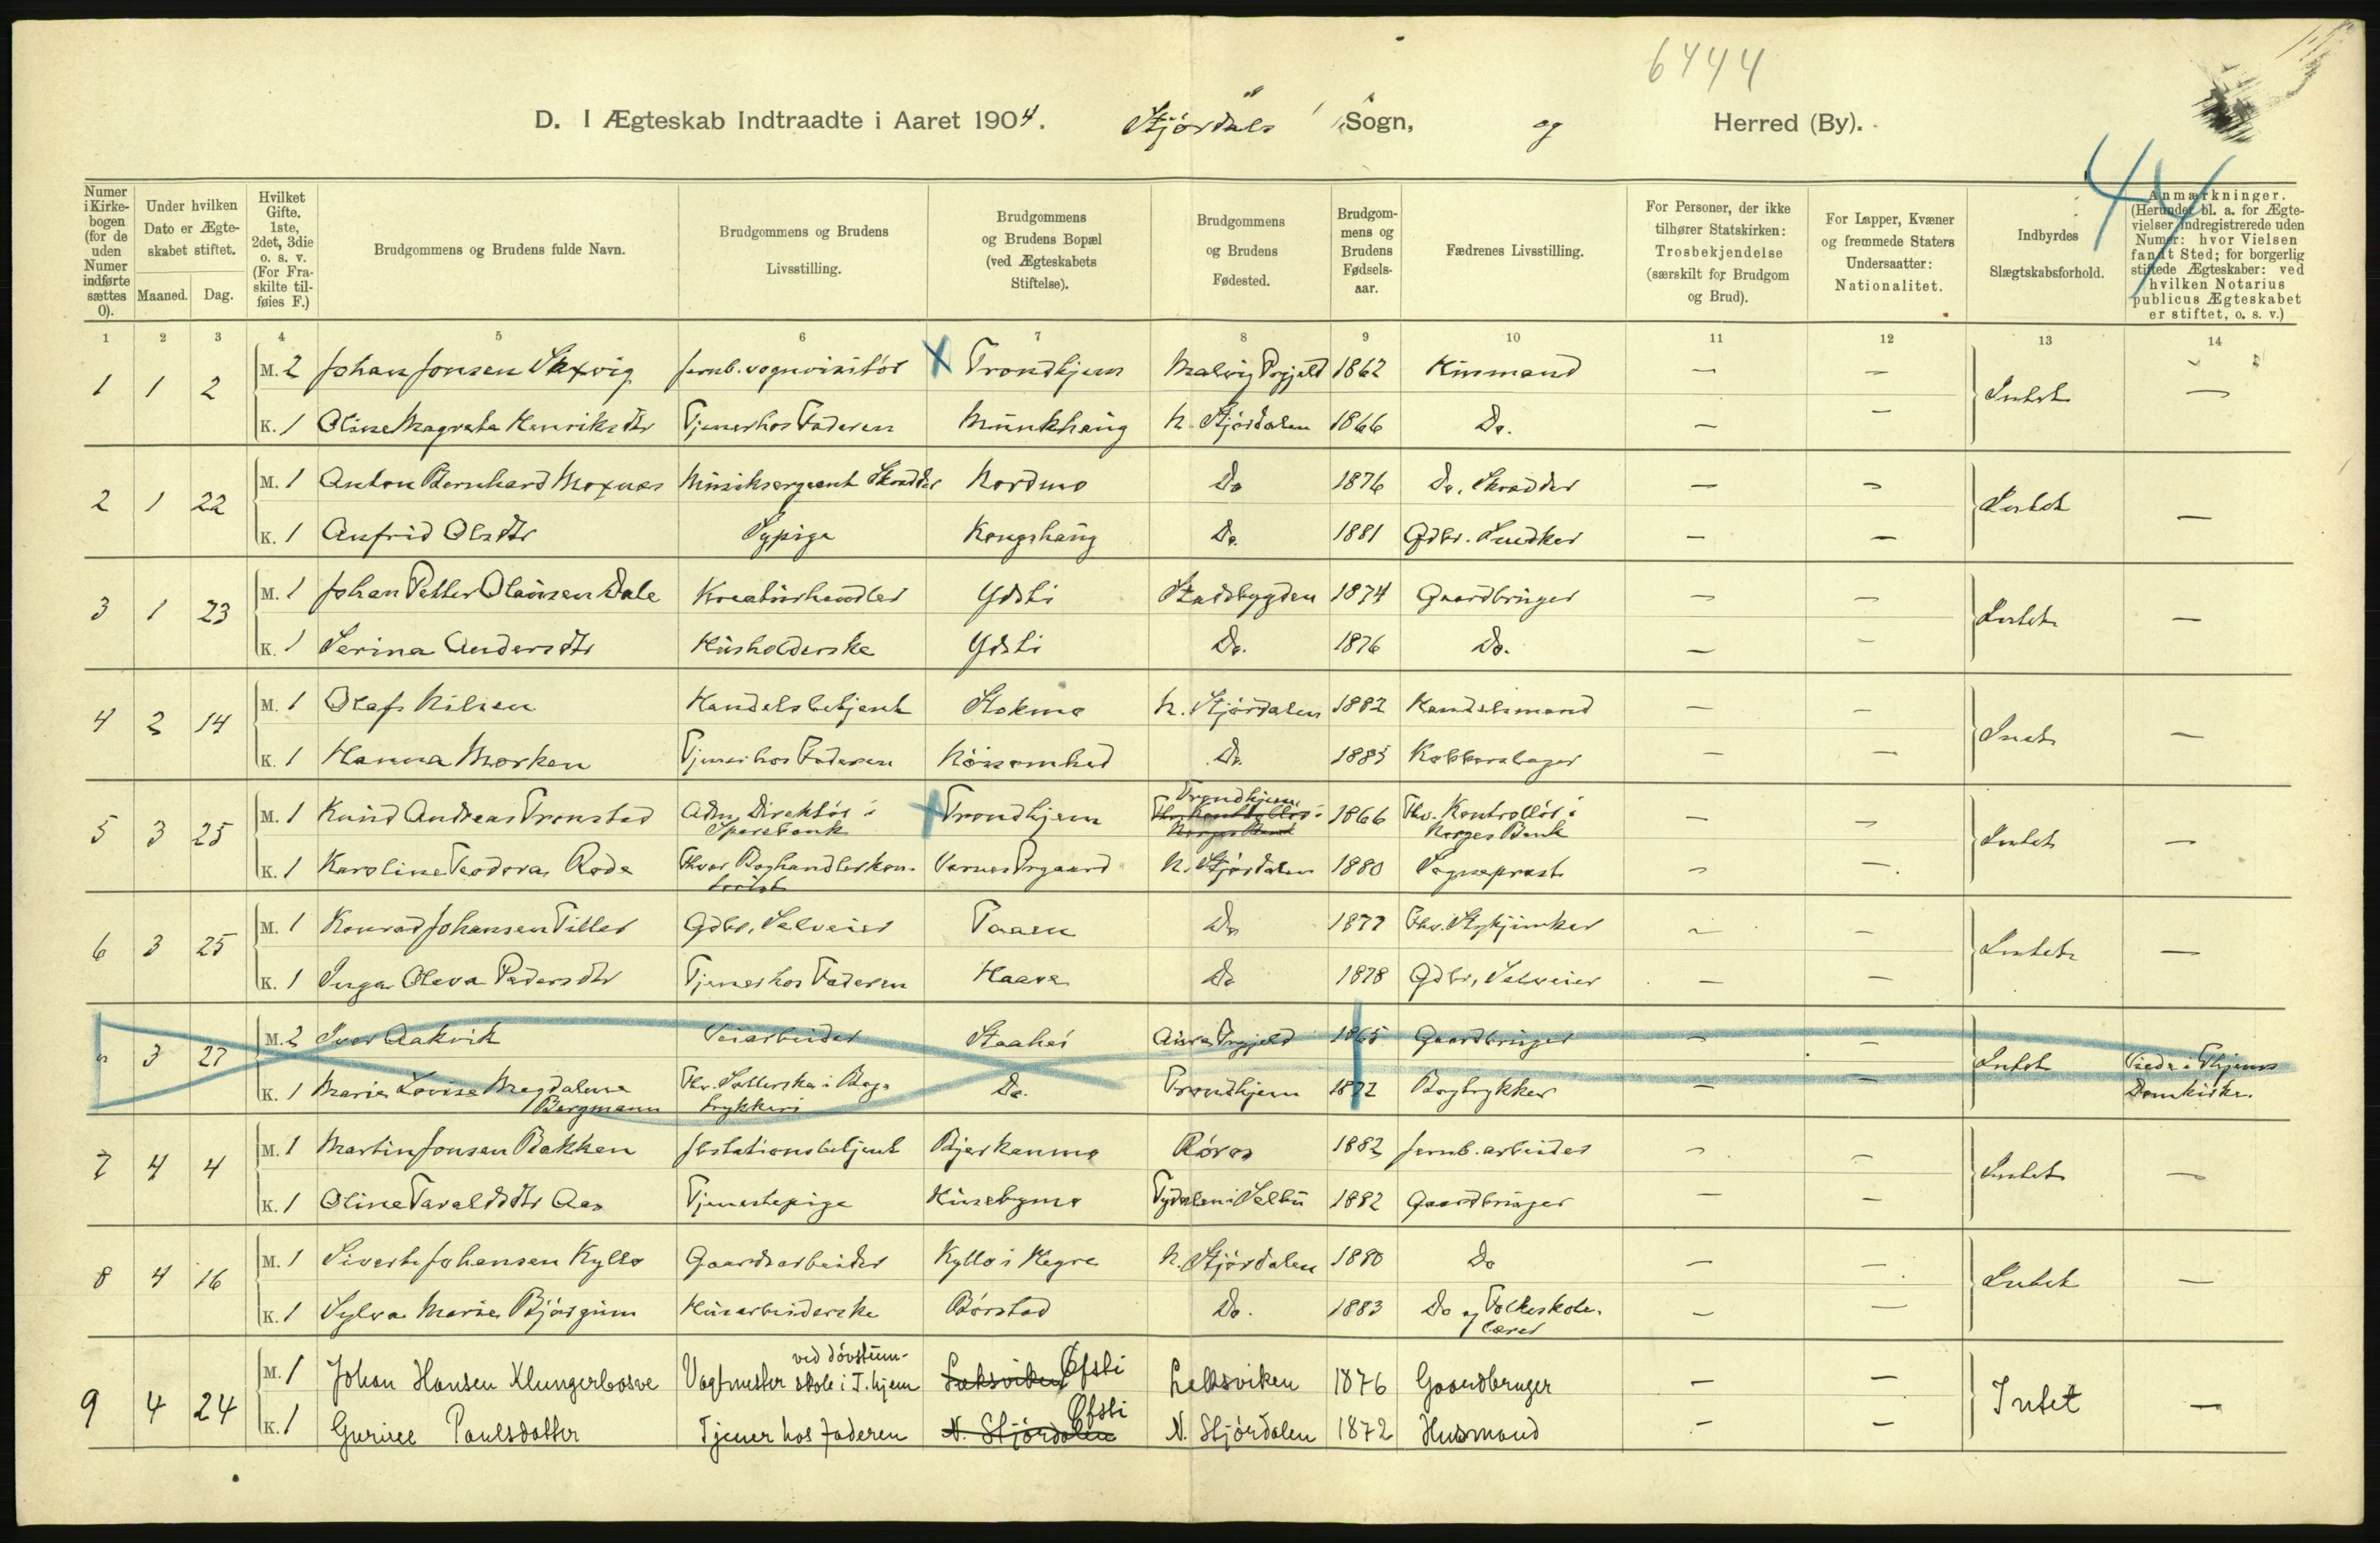 6444
D. I Ægteskab Indtraadte i Aaret 1904. Stjørdals Sogn, og Herred (By).
44
Numer i Kirkebogen (for de uden Numer indførte sættes 0).
Under hvilken Dato er Ægteskabet stiftet.
Maaned. Dag.
Hvilket Gifte. 1ste, 2det, 3die o. s. v. (For Fraskilte tilføies F.)
Brudgommens og Brudens fulde Navn.
Brudgommens og Brudens Livsstilling.
Brudgommens og Brudens Bopæl (ved Ægteskabets Stiftelse).
Brudgommens og Brudens Fødested.
Brudgommens og Brudens Fødselsaar.
Fædrenes Livsstilling.
For Personer, der ikke tilhører Statskirken: Trosbekjendelse (særskilt for Brudgom og Brud).
For Lapper, Kvæner og fremmede Staters Undersaatter: Nationalitet.
Indbyrdes Slægtskabsforhold.
Anmærkninger. (Herunder bl. a. for Ægtevielser indregistrerede uden Numer: hvor Vielsen fandt Sted; for borgerlig stiftede Ægteskaber: ved hvilken Notarius publicus Ægteskabet er stiftet, o. s. v.)
1 2 3 4 5 6 7 8 9 10 11 12 13 14
1 1 2 M. 2 Johan Jonsen Saxvig Jernb. vognvisitör X Trondhjem Malvig Prgjeld 1862 Husmand — — Intet —
K. 1 Oline Magreta Henriksdtr Tjener hos Faderen Munkhaug N. Stjördalen 1866 Do. — —
2 1 22 M. 1 Anton Bernhard Moxnes Musiksergeant Skrædder Nordmo Do 1876 Do. Skrædder — — Intet —
K. 1 Anfrid Olsdtr Sypige Kongshaug Do. 1881 Gdbr. Snedker — —
3 1 23 M. 1 Johan Petter Olausen Dale Kreaturhandler Ydsti Stadsbygden 1874 Gaardbruger — — Intet —
K. 1 Serina Andersdtr Husholderske Ydsti Do. 1876 Do. — —
4 2 14 M. 1 Olaf Nilsen Handelsbetjent Stokmo N. Stjördalen 1882 Handelsmand — — Intet —
K. 1 Hanna Morken Tjener hos Faderen Nöisomhed Do. 1885 Kobberslager — —
5 3 25 M. 1 Knud Andreas Tronstad Adm. Direktör i Sparebank X Trondhjem Trondhjem 1866 Fhv. Kontrollör i Norges Bank — — Intet —
K. 1 Karoline Teodora Rode Fhv. Boghandlerkontorist Værnes Prgaard N. Stjördalen 1880 Sogneprest — —
6 3 25 M. 1 Konrad Johansen Tiller Gdbr. Selveier Taaen Do 1877 Fhv. — — Intet —
K. 1 Inga Oleva Pedersdtr Tjener hos Faderen Haave Do 1878 Gdbr, Selveier — —
3 27 M. 2 Iver Aakvik Veiarbeider Aure Prgjeld 1865 Gaardbruger — — Intet Viede i Thjems
K. 1 Marie Lovise Magdalene Bergmann Fhv. Sætterske i Bogtrykkeri Do. Trondhjem 1872 Bogtrykker — — Domkirke.
7 4 4 M. 1 Martin Jonsen Bakken Jbstationsbetjent Bjerkanmo Röros 1882 Jernb. arbeider — — Intet —
K. 1 Oline Taralddtr Aas Tjenestepige Husebymo Tydalen i Selbu 1882 Gaardbruger — —
8 4 16 M. 1 Sivert Johansen Kyllo Gaardsarbeider Kyllo i Hegre N. Stjördalen 1880 Do — — Intet —
K. 1 Sylva Marie Björgum Husarbeiderske Börstad Do. 1883 Do og Folkeskolelærer — —
9 4 24 M. 1 Johan Hansen Klungerbosve Vagtmester ved dövstumskole i T.hjem Leksviken Öfsti Leksviken 1876 Gaardbruger — — Intet —
K. 1 Gurine Paulsdatter Tjener hos faderen N. Stjördalen Öfsti N. Stjördalen 1872 Husmand — —